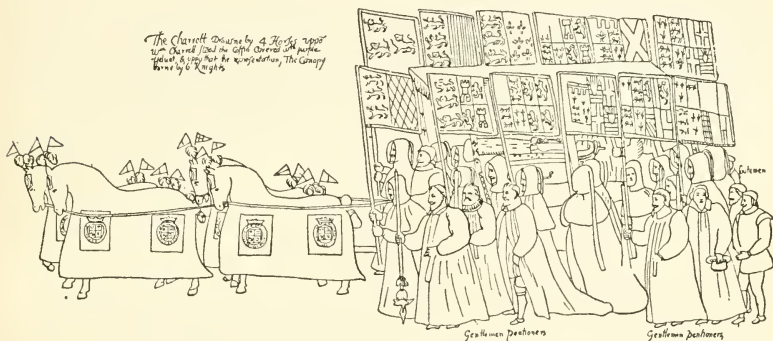 The Charrett Drawne by 4 Horses uppō
wch Charrett stood the Coffin Covered wth purple
veluet, & uppō that the representation, The Canopy
borne by 6 Knights
footemen
Gentlemen Pentioners
Gentlemen Pentioners